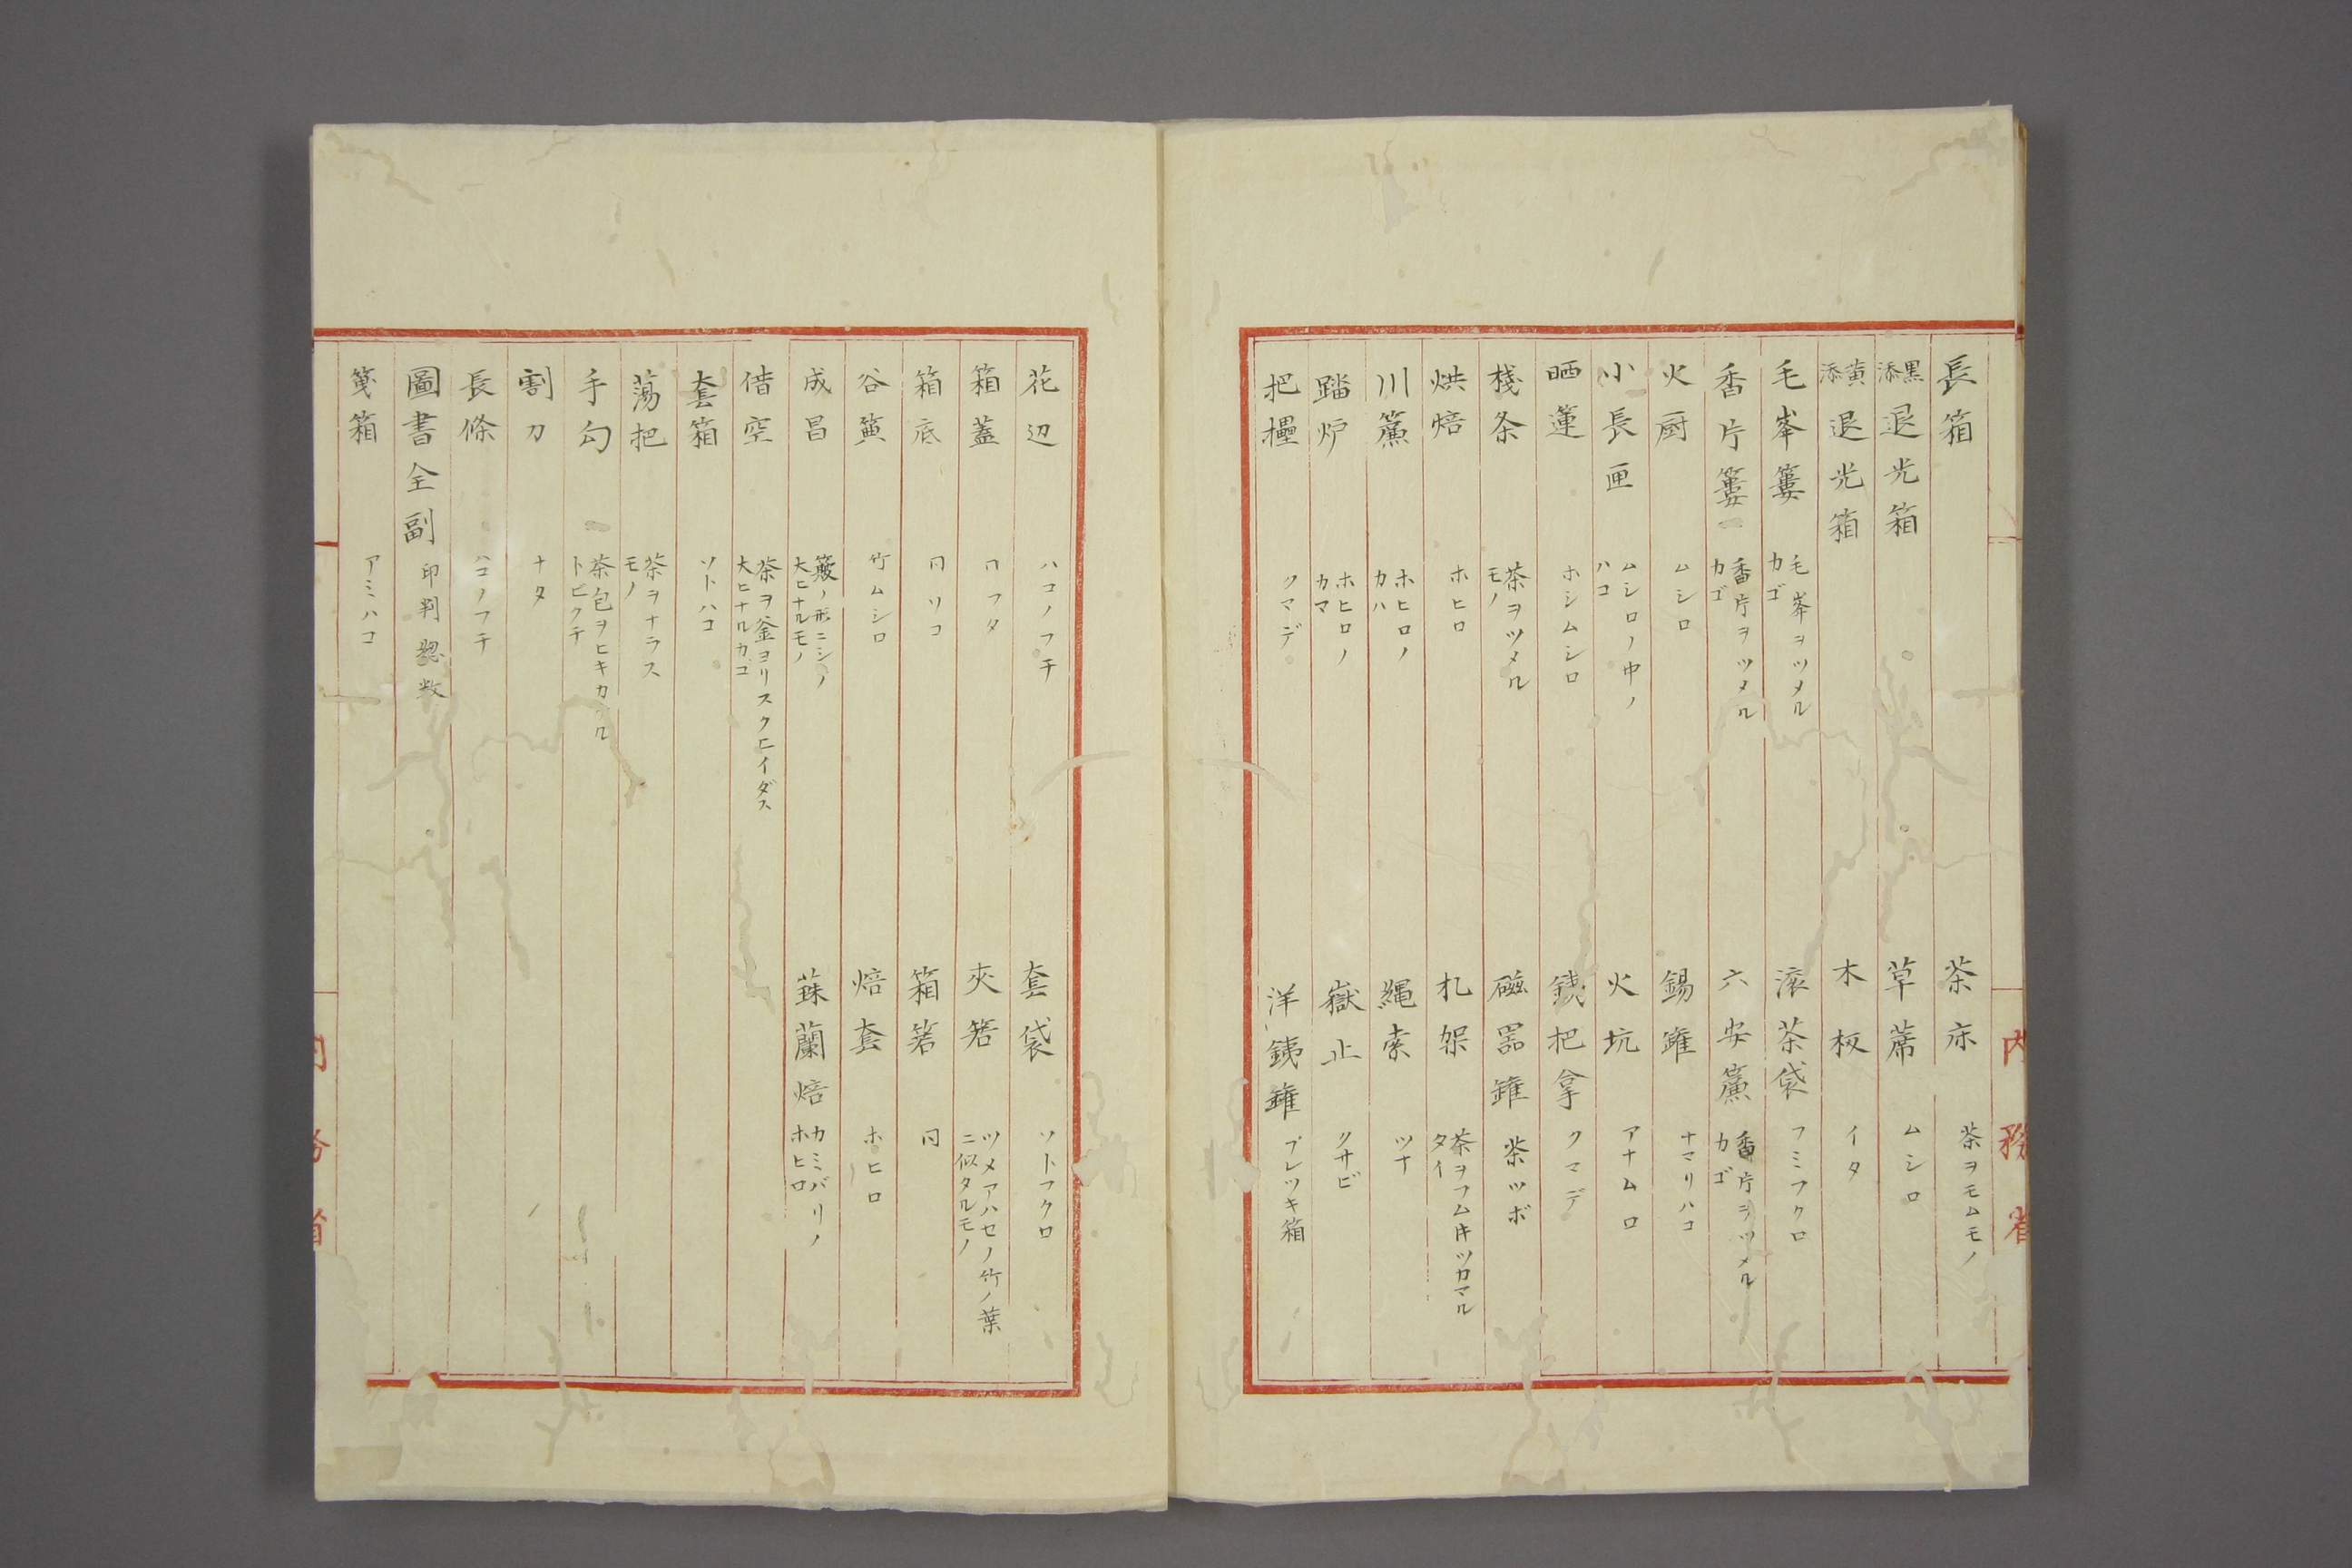 長箱　茶床　茶ヲモムモノ
黒添退光箱　草蓆　ムシロ
黄添退光箱　木板　イタ
毛峯簍　毛峯ヲツメルカゴ　滚茶袋　フミフクロ
香片簍　香片ヲツメルカゴ　六安簾　香片ヲツメルカゴ
火厨　ムシロ　錫錐　ナマリハコ
小長匣　ムシロノ中ノハコ　火坑　アナムロ
晒蓮　ホシムシロ　銕把拿　クマデ
棧条　茶ヲツメルモノ　磁器錐　茶ツボ
烘焙　ホヒロ　札架　茶ヲフム片ツカマルタイ
川簾　ホヒロノカハ　繩索　ツナ
踏炉　ホヒロノカマ　嶽止　クサビ
把　クマデ　洋銕錐　ブレツキ箱
内務省
花辺　ハコノフチ　套袋　ソトフクロ
箱蓋　同フタ　夾箬　ツメアハセノ竹ノ葉ニ似タルモノ
箱底　同ソコ　箱箬　同
谷簧　竹ムシロ　焙套　ホヒロ
成昌　簸ノ形ニシノ大ヒナルモノ　蘭焙　カミバリノホヒロ
借空　茶ヲ釜ヨリスクヒイダス大ヒナルカゴ
套箱　ソトハコ
蕩把　茶ヲナラスモノ
手勾　茶包ヲヒキカクルトビクチ
割刀　ナタ
長條　ハコノフチ
圖書全副　印判惣数
箋箱　アミハコ
内務省